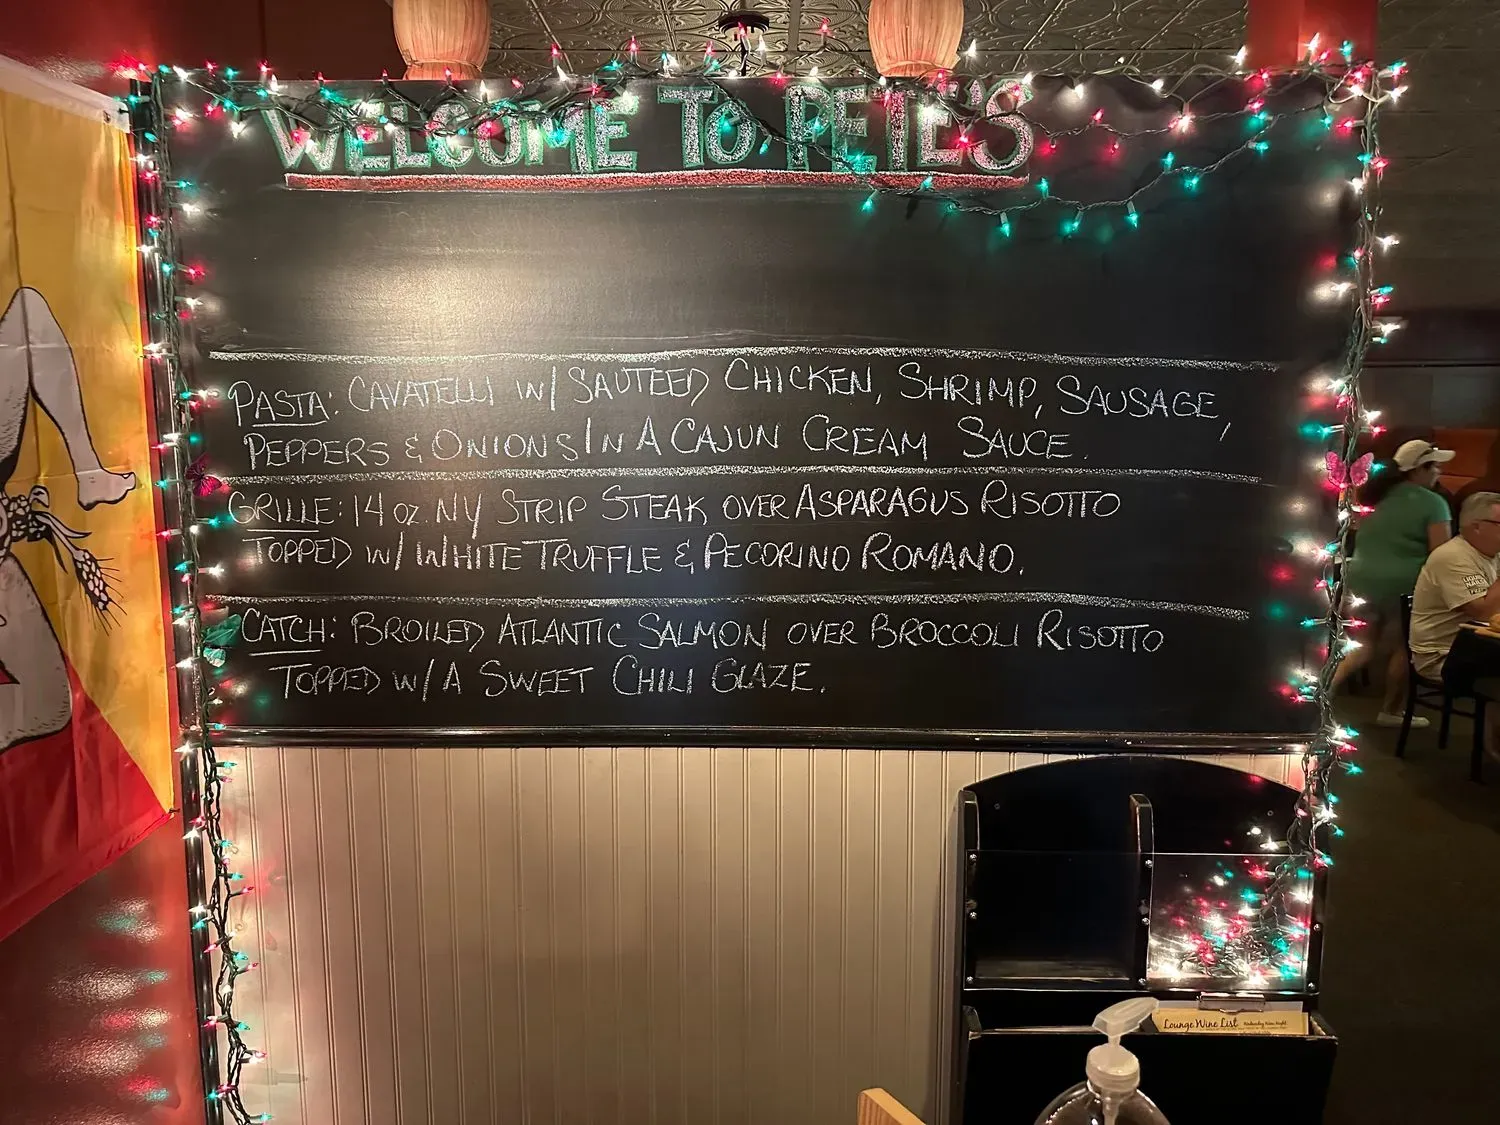 WELCOME TO PETE'S
PASTA: CAVATELLI W/ SAUTEED CHICKEN, SHRIMP, SAUSAGE,
PEPPERS & ONIONS IN A CAJUN CREAM SAUCE.
GRILLE: 14 oz. NY STRIP STEAK OVER ASPARAGUS RISOTTO
TOPPED W/ WHITE TRUFFLE & PECORINO ROMANO.
CATCH: BROILED ATLANTIC SALMON OVER BROCCOLI RISOTTO
TOPPED W/ A SWEET CHILI GLAZE.
Lounge Wine List